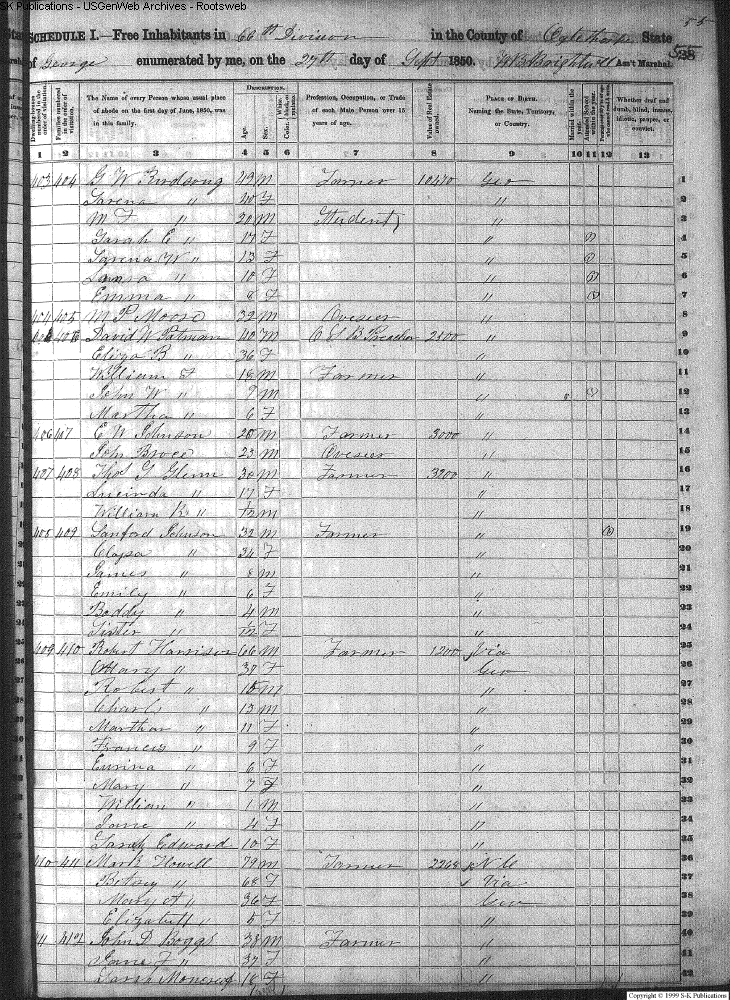 SK Publications - USGenWeb Archives - Rootsweb
55
SCHEDULE I.—Free Inhabitants in 66th Division in the County of Oglethorpe State
of George enumerated by me, on the 27th day of Sept 1850. Ass't Marshal.
Dwelling-houses numbered in the order of visitation.
Families numbered in the order of visitation.
The Name of every Person whose usual place of abode on the first day of June, 1850, was in this family.
DESCRIPTION.
Age.
Sex.
Color.
Profession, Occupation, or Trade of each Male Person over 15 years of age.
Value of Real Estate owned.
PLACE OF BIRTH. Naming the State, Territory, or Country.
Married within the year.
Attended School within the year.
Whether deaf and dumb, blind, insane, idiotic, pauper, or convict.
1 2 3 4 5 6 7 8 9 10 11 12 13
403 404 G W Birdsong 49 M Farmer 10470 Geo 1
Sarena " 40 F " 2
M F " 20 M Student " 3
Sarah E " 17 F " 1 4
Sarena W " 12 F " 1 5
" 10 F " 1 6
Emma " 8 F " 1 7
404 405 M P Moore 22 M Overseer " 8
David W Patman 40 M Preacher 2100 " 9
Eliza B " 36 F " 10
William F 18 M Farmer " 11
John W " 9 M " 1 12
Martha " 6 F " 13
406 407 E W Johnson 25 M Farmer 3000 " 14
23 M Overseer " 15
407 408 Thos G Glenn 30 M Farmer 3200 " 16
Lucinda " 17 F " 17
William R " M " 18
408 409 Sanford Johnson 32 M Farmer " 19
" 34 F " 20
James " 8 M " 21
Emily " 6 F " 22
Boddy " 4 M " 23
Sister " F " 24
409 410 Robert Harrison 66 M Farmer 1200 Via 25
Mary " 30 F Geo 26
Robert " 15 M " 27
Charls " 13 M " 28
Marthar " 11 F " 29
Francis " 9 F " 30
" 6 F " 31
Mary " 7 F " 32
William " 1 M " 33
Jane " 4 F " 34
Sarah Edward 10 F " 35
410 411 Mark Howell 79 M Farmer N C 36
Betsey " 68 F Via 37
Mary A " 36 F Geo 38
Elizabeth " 5 F " 39
412 John D Boggs 38 M Farmer " 40
Jane F " 37 F " 41
Sarah 16 F " 42
Copyright © 1999 S-K Publications